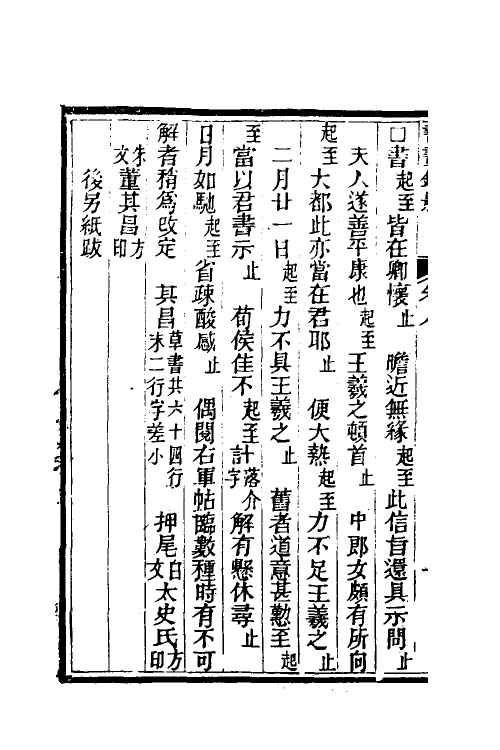 □書起至皆在卿懷止　瞻近無緣起至此信旨還具示問止
夫人遂善平康也起至王羲之頓首止　中郎女頗有所向
起至大都此亦當在君耶止　便大熱起至力不足王羲之止
二月廿一日起至力不具王羲之止　舊者道意甚懃至起
至當以君書示止　荀侯佳不起至計落介字解有懸休尋止
日月如馳起至省疎酸感止　偶閱右軍帖臨數種時有不可
解者稍爲改定　其昌草書共六十四行末二行字差小　押尾白文太史氏方印
朱文董其昌方印
後另紙跋